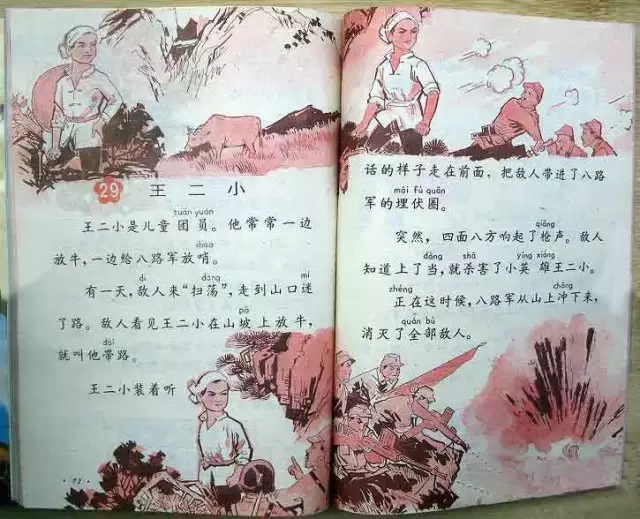 29 王二小
tuán yuán
王二小是儿童团员。他常常一边
shào
放牛，一边给八路军放哨。
dí dàng mí
有一天，敌人来“扫荡”，走到山口迷
pō
了路。敌人看见王二小在山坡上放牛，
dài
就叫他带路。
王二小装着听
· 72 ·
话的样子走在前面，把敌人带进了八路
mái fú quān
军的埋伏圈。
qiāng
突然，四面八方响起了枪声。敌人
dàng shā yīng xióng
知道上了当，就杀害了小英雄王二小。
zhèng chōng
正在这时候，八路军从山上冲下来，
quán bù
消灭了全部敌人。